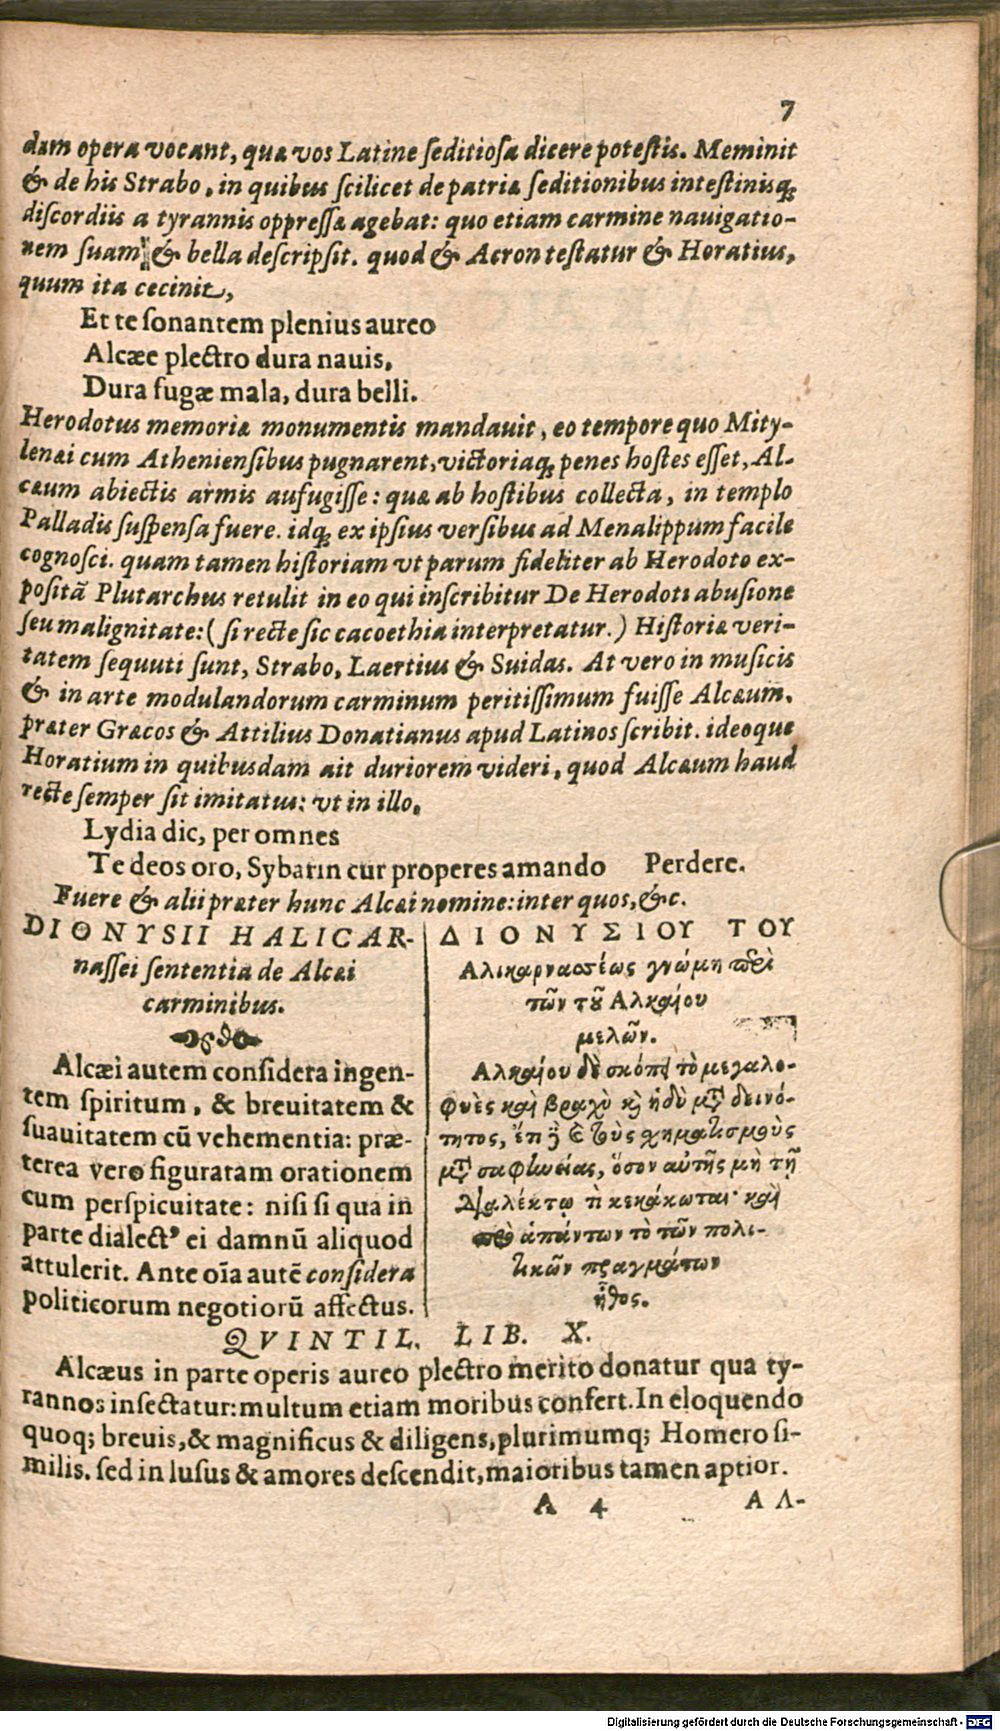 7
dam opera vocant, quæ vos Latine ſeditioſa dicere poteſtis. Meminit
& de his Strabo, in quibus ſcilicet de patriæ ſeditionibus inteſtinisq́;
diſcordiis a tyrannis oppreſſæ agebat: quo etiam carmine nauigatio-
nem ſuam & bella deſcripſit. quod & Acron teſtatur & Horatius,
quum ita cecinit,
Et te ſonantem plenius aureo
Alcæe plectro dura nauis,
Dura fugæ mala, dura belli.
Herodotus memoriæ monumentis mandauit, eo tempore quo Mity-
lenæi cum Athenienſibus pugnarent, victoriaq́; penes hoſtes eſſet, Al-
cæum abiectis armis aufugiſſe: quæ ab hoſtibus collecta, in templo
Palladis ſuſpenſa fuere. idq́; ex ipſius verſibus ad Menalippum facile
cognoſci. quam tamen hiſtoriam vt parum fideliter ab Herodoto ex-
poſitã Plutarchus retulit in eo qui inſcribitur De Herodoti abuſione
ſeu malignitate: (ſi recte ſic cacoethia interpretatur.) Hiſtoriæ veri-
tatem ſequuti ſunt, Strabo, Laertius & Suidas. At vero in muſicis
& in arte modulandorum carminum peritiſſimum fuiſſe Alcæum,
præter Græcos & Attilius Donatianus apud Latinos ſcribit. ideoque
Horatium in quibusdam ait duriorem videri, quod Alcæum haud
recte ſemper ſit imitatus: vt in illo,
Lydia dic, per omnes
Te deos oro, Sybarin cur properes amando Perdere.
Fuere & alii præter hunc Alcæi nomine: inter quos, &c.
DIONYSII HALICAR-
naſſei ſententia de Alcæi
carminibus.
Alcæi autem conſidera ingen-
tem ſpiritum, & breuitatem &
ſuauitatem cū vehementia: præ-
terea vero figuratam orationem
cum perſpicuitate: niſi ſi qua in
parte dialectꝰ ei damnū aliquod
attulerit. Ante oīa autē conſidera
politicorum negotiorū affectus.
ΔΙΟΝΥΣΙΟΥ ΤΟΥ
Αλικαρνασσέως γνώμη περὶ
τῶν τοῦ Αλκαίου
μελῶν.
Αλκαίου δὲ σκόπει τὸ μεγαλο-
φυὲς καὶ βραχὺ καὶ ἡδὺ μετὰ δεινό-
τητος, ἔτι δὲ καὶ τοὺς χηματισμοὺς
μετὰ σαφηνείας, ὅσον αὐτῆς μὴ τῇ
Διαλέκτῳ τὶ κεκάκωται· καὶ
πρὸ ἁπάντων τὸ τῶν πολι-
τικῶν πραγμάτων
ἦθος.
QVINTIL. LIB. X.
Alcæus in parte operis aureo plectro merito donatur qua ty-
rannos inſectatur: multum etiam moribus confert. In eloquendo
quoq; breuis, & magnificus & diligens, plurimumq; Homero ſi-
milis. ſed in luſus & amores deſcendit, maioribus tamen aptior.
A 4 ΑΛ-
Digitalisierung gefördert durch die Deutsche Forschungsgemeinschaft - DFG